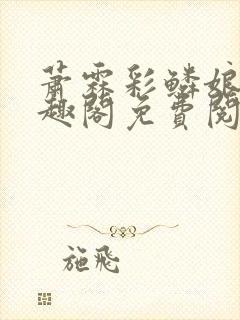 萧霖彩鳞娘
趣阁免费阅
施飛